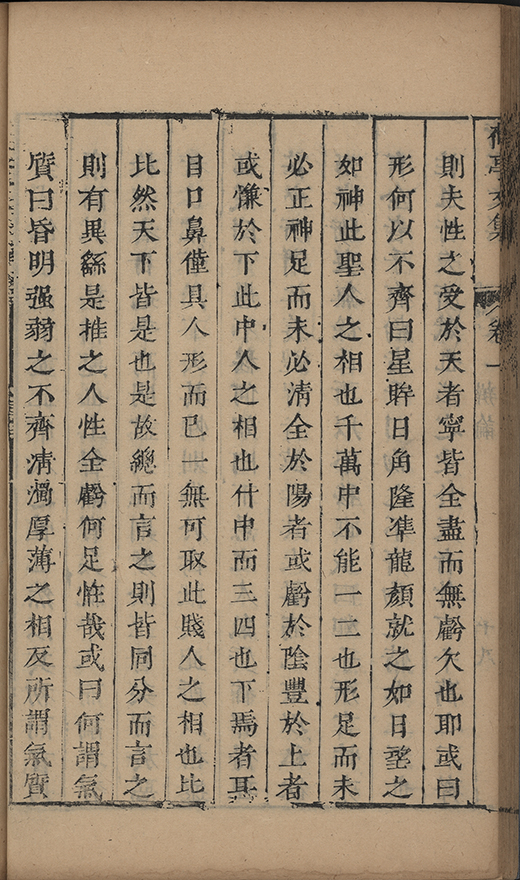 亭文集 卷一
則夫性之受於天者寧皆全盡而無虧欠也耶或曰
形何以不齊曰星眸日角隆準龍顏就之如日望之
如神此聖人之相也千萬中不能一二也形足而未
必正神足而未必淸全於陽者或虧於陰豐於上者
或慊於下此中人之相也什中而三四也下焉者耳
目口鼻僅具人形而已一無可取此賤人之相也比
比然天下皆是也是故總而言之則皆同分而言之
則有異繇是推之人性全虧何足恠哉或曰何謂氣
質曰昏明强弱之不齊淸濁厚薄之相反所謂氣質